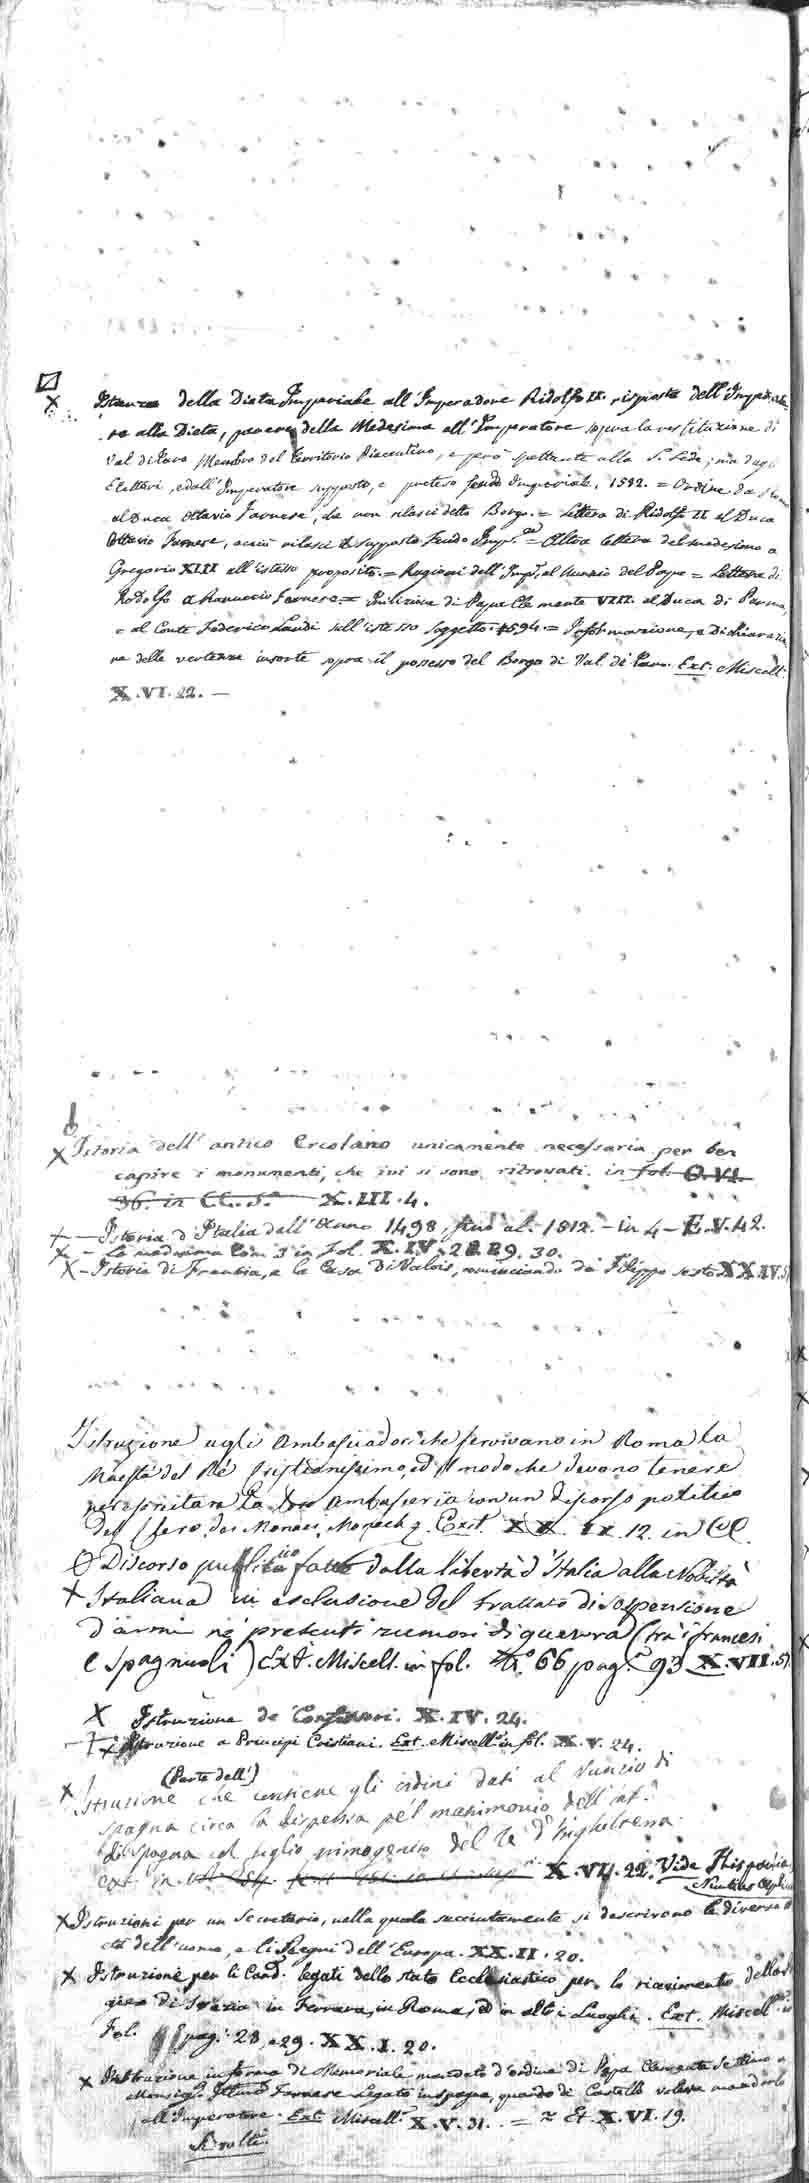 Istanza della Dieta Imperiale all'Imperadore Ridolfo II. risposta dell'Imperado-
re alla Dieta, parere della Medesima all'Imperatore sopra la restituzione di
Val di Taro Membro del Territorio Piacentino, e però spettante alla S. Sede; ma dagl'
Elettori, e dall'Imperatore supposto, e preteso feudo Imperiale, 1582. = Ordine da
al Duca Ottavio Farnese, che non rilasci detto Borgo. = Lettera di Ridolfo II al Duca
Ottavio Farnese, acciò rilasci il supposto Feudo Imp. = Altra lettera del medesimo a
Gregorio XIII all'istesso proposito. = Ragioni dell'Imp. al Nunzio del Papa = Lettera di
Rodolfo a Ranuccio Farnese. = Inibizione di Papa Clemente VIII. al Duca di Parma,
e al Conte Federico Landi sull'istesso soggetto. 1594. = Informazione, e Dichiarazio
ne delle vertenze insorte sopra il possesso del Borgo di Val di Taro. Ext. Miscell.
X.VI.22. —
X Istoria dell'antico Ercolano unicamente necessaria per ben
capire i monumenti, che ivi si sono ritrovati. in fol. O.VI.
36. in X.III.4.
+ — Istoria d'Italia dall'Anno 1498, fino al 1812. – in 4 – E.V.42.
X – La medesima Tom. 3 in Fol. X.IV.28 29. 30.
X – Istoria di Francia, e la Casa di Valois, cominciando da Filippo sesto XX.IV.
Istruzione agli Ambasciadori che servivano in Roma la
Maestà del Ré Cristianissimo, ed il modo che devono tenere
per esercitare la loro Ambasceria con un discorso politico
Ext. XX. IX.12. in
Discorso fatto dalla libertà d'Italia alla Nobiltà
X Italiana in esclusione del trattato di sospensione
d'armi ne' presenti rumori di guerra (trà i francesi
e spagnuoli) Ext. Miscell. in fol. 66 pag. 93 X.VII.
X Istruzione de' Confessori. X.IV.24.
Istruzione a Principi Cristiani. Ext. Miscell. in fol. X.V.24.
(Parte dell')
X Istruzione che contiene gli ordini dati al Nunzio di
Spagna circa la dispensa pel matrimonio dell'inf.
di Spagna col figlio primogenito del Re d'Inghilterra
ext. in X.VII.22. Vide
X Istruzioni per un Secretario, nella quale succintamente si descrivono le diverse
età dell'uomo, e li Regni dell'Europa. XX.II.20.
X Istruzione per li Card. legati dello stato Ecclesiastico per lo ricevimento della
di Svezia in Ferrara, in Roma, ed in altri Luoghi. Ext. Miscell. in
Fol. pag. 28, e 29. XX.I.20.
X Instruzione in forma di Memoriale mandato d'ordine di Papa Clemente Settimo a
Monsig. Farnese Legato in spagna, quando di Castello voleva mandarlo
all'Imperatore. Ext. Miscell. X.V.31. = Et. X.VI.19.
Si volti.